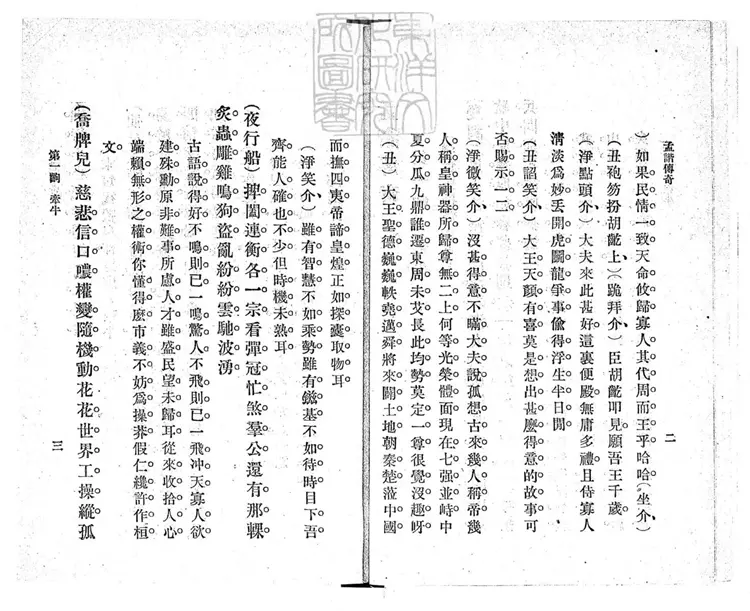 孟諧傳奇
二
）如果民情一致天命攸歸寡人其代周而王乎哈哈（坐介）
（丑袍笏扮胡齕上）（跪拜介）臣胡齕叩見願吾王千歲
（淨點頭介）大夫來此甚好這裏便殿無庸多禮且侍寡人
清淡爲妙丟開虎鬭龍爭事偸得浮生半日閒
（丑諂笑介）大王天顏有喜莫是想出甚麽得意的故事可
否賜示一二
（淨微笑介）沒甚得意不瞞大夫說孤想古來幾人稱帝幾
人稱皇神器所歸尊無二上何等光榮體面現在七强並峙中
夏分瓜九鼎誰遷東周未艾長此均勢莫定一尊很覺沒趣呀
（丑）大王聖德巍巍軼堯邁舜將來闢土地朝秦楚蒞中國
而撫四夷帝諦皇煌正如探囊取物耳
（淨笑介）雖有智慧不如乘勢雖有鎡基不如待時目下吾
齊能人確也不少但時機未熟耳
（夜行船）捭闔連衡各一宗看彈冠忙煞羣公還有那輠
炙蟲雕雞鳴狗盜亂紛紛雲馳波湧
古語說得好不鳴則已一鳴驚人不飛則已一飛冲天寡人欲
建殊勳原非難事所慮人才雖盛民望未歸耳從來收拾人心
端賴無形之權術你懂得麽市義不妨爲操莽假仁纔許作桓
文
（喬牌兒）慈悲信口膿權變隨機動花花世界工操縱孤
第一齣 牽牛
三
東洋文化研究所圖書